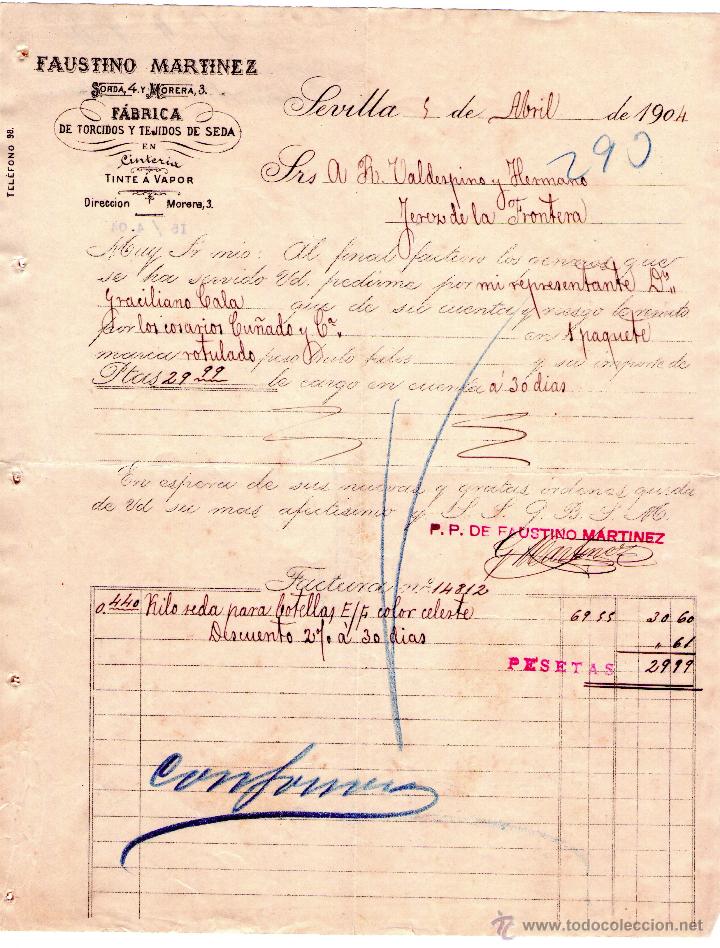 FAUSTINO MARTINEZ
SORDA, 4. Y MORERA, 3.
FÁBRICA
DE TORCIDOS Y TEJIDOS DE SEDA
EN
Cinteria
TINTE Á VAPOR
Direccion Morera, 3.
TELÉFONO 98.
Sevilla 5 de Abril de 1904
290
Srs A. R. Valdespino y Hermano
Jerez de la Frontera
Muy Sr mio: Al final facturo los generos que
se ha servido Vd. pedirme por mi representante Dn
Graciliano Cala que de su cuenta y riesgo le remito
por los cosarios Cuñado y Cª. en 1 paquete
marca rotulado peso bruto kilos y su importe de
Ptas 29 99 le cargo en cuenta á 30 dias
En espera de sus nuevas y gratas órdenes queda
de Vd su mas afectisimo y S. S. Q. B. S. M.
P. P. DE FAUSTINO MARTINEZ
Martinez
Factura n.º 14812
0.440 Kilo seda para botellas E/F color celeste 69 55 30 60
Descuento 2% á 30 dias " 61
PESETAS 29 99
Conforme
www.todocoleccion.net